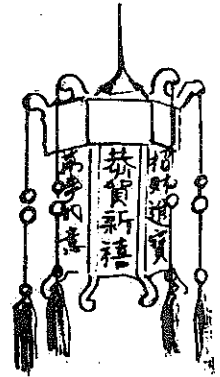 招財進寶
恭賀新禧
萬事如意